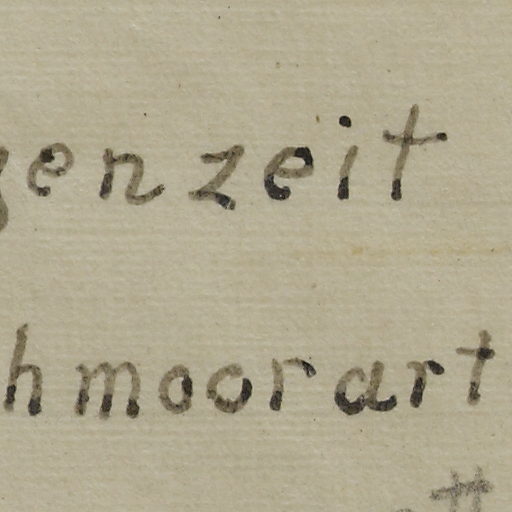 genzeit
hmoorart
tt